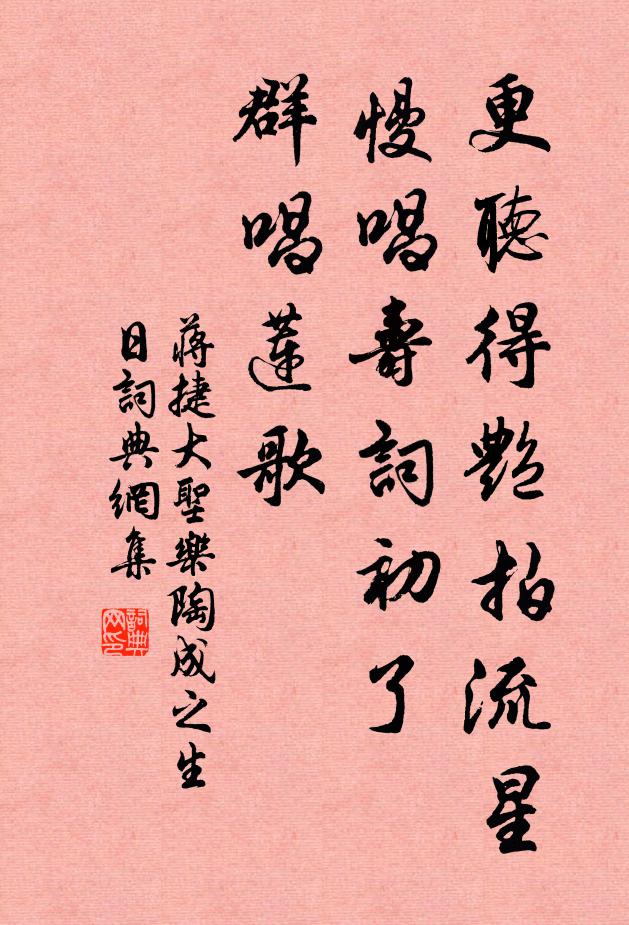 更聽得艷拍流星
慢唱壽詞初了
群唱蓮歌
蔣捷大聖樂陶成之生
日詞典網集
詞典
网印